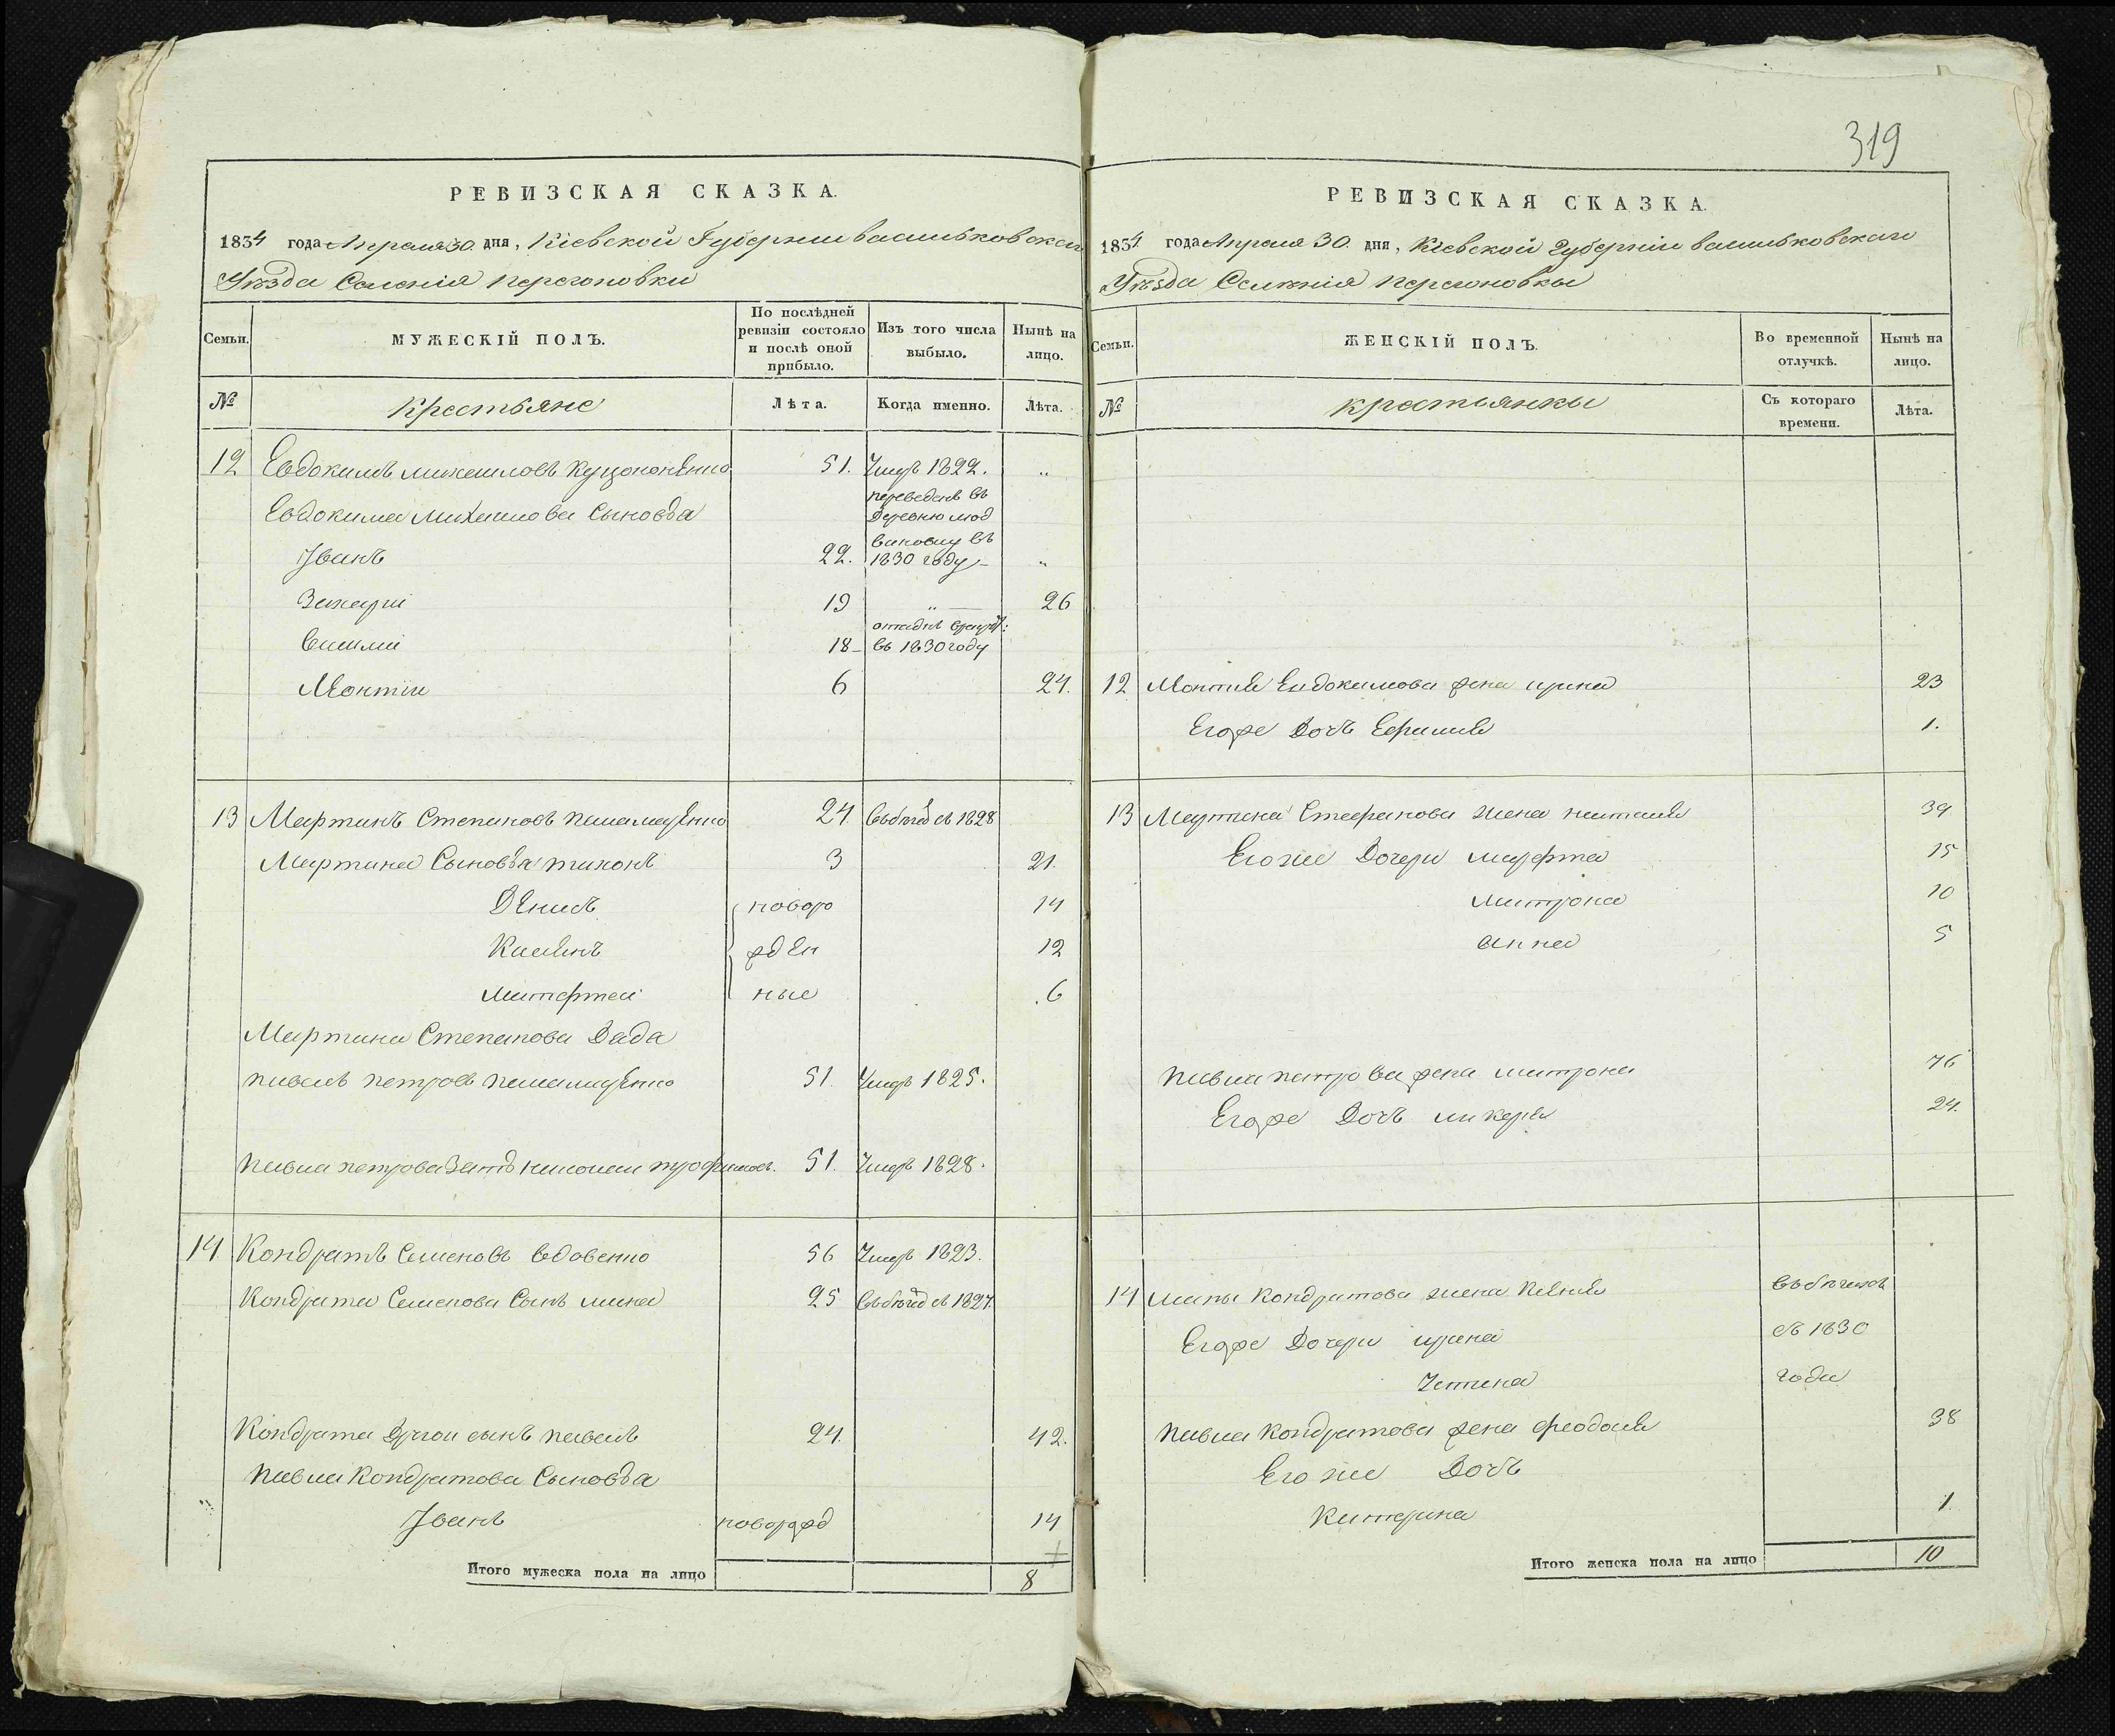 319
РЕВИЗСКАЯ СКАЗКА.
1834 года Апреля 30. дня, Кіевской Губерніи васильковскаго
Уѣзда Селенія перегоновки
Семьи.
МУЖЕСКІЙ ПОЛЪ.
По послѣдней ревизіи состояло и послѣ оной прибыло.
Изъ того числа выбыло.
Нынѣ на лицо.
№
крестьяне
Лѣта.
Когда именно.
Лѣта.
12 Евдокимъ михаиловъ 51. Умеръ 1822. „
Евдокима Михаилова Сыновья
переведенъ въ
деревню
въ
Іванъ 22. 1830 году „
Захарій 19 „ 26
Василій 18 въ 1830 году
Монтій 6 24.
13 Мартинъ Степановъ 24 1828
Мартина Сыновья тихонъ 3 21.
Денисъ новоро 14
Касянъ жден 12
Матфтей ные 6
Мартина Степанова Дядя
павелъ петровъ 51. Умеръ 1825.
павла петрова Зять николай трофимовъ. 51. Умеръ 1828.
14 Кондратъ Семеновъ вдовенко 56 Умеръ 1823.
Кондрата Семенова Сынъ мина 25 1827.
Кондрата Другои сынъ павелъ 24. 42.
павла Кондратова Сыновья
Іванъ поворожд 14
Итого мужеска пола на лицо 8
РЕВИЗСКАЯ СКАЗКА.
1834 года Апреля 30. дня, Кіевской Губерніи васильковскаго
Уѣзда Селѣнія перегоновкы
Семьи.
ЖЕНСКІЙ ПОЛЪ.
Во временной отлучкѣ.
Нынѣ на лицо.
№
крестьянкы
Съ котораго времени.
Лѣта.
12 Монтія Евдокимова жена ирина 23
Егоже Дочь Ефимія 1.
13 Мартина Стефанова жена наталія 39
Егоже Дочери марфта 15
матрона 10
анна 5
павла петрова жена матрона 76
Егоже Дочь ликерія 24.
14 мины Кондратова жена въ бѣгахъ
Егоже Дочери ирина съ 1830
Устина года
павла Кондратова жена феодосія 38
Егоже Дочь
Катерина 1.
Итого женска пола на лицо 10